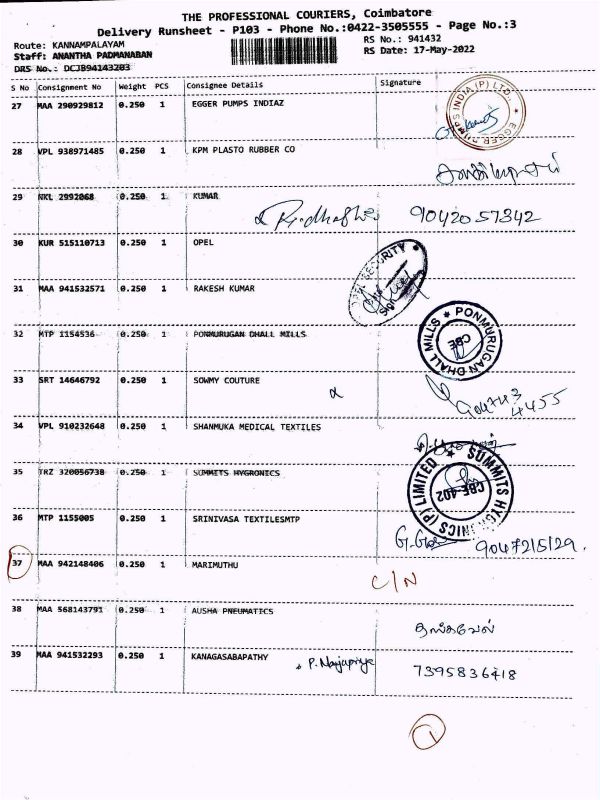 THE PROFESSIONAL COURIERS, Coimbatore
Delivery Runsheet - P103 - Phone No.:0422-3505555 - Page No.:3
Route: KANNAMPALAYAM RS No.: 941432
Staff: ANANTHA PADMANABAN RS Date: 17-May-2022
DRS No.: DCJB94143203
S No Consignment No Weight PCS Consignee Details Signature
27 MAA 290929812 0.250 1 EGGER PUMPS INDIAZ
EGGER PUMPS INDIA (P) LTD.
28 VPL 938971485 0.250 1 KPM PLASTO RUBBER CO
29 NKL 2992068 0.250 1 KUMAR
9042057342
30 KUR 515110713 0.250 1 OPEL
OPEL SECURITY
31 MAA 941532571 0.250 1 RAKESH KUMAR
32 MTP 1154536 0.250 1 PONMURUGAN DHALL MILLS
PONMURUGAN DHALL MILLS ★
CBE
33 SRT 14646792 0.250 1 SOWMY COUTURE
904743
4455
34 VPL 910232648 0.250 1 SHANMUKA MEDICAL TEXTILES
35 TRZ 320056738 0.250 1 SUMMITS HYGRONICS
SUMMITS HYGRONICS (P) LIMITED ★
CBE-402
36 MTP 1155005 0.250 1 SRINIVASA TEXTILESMTP
9047215129.
37 MAA 942148406 0.250 1 MARIMUTHU
C/N
38 MAA 568143791 0.250 1 AUSHA PNEUMATICS
தங்கவேல்
39 MAA 941532293 0.250 1 KANAGASABAPATHY
7395836418
1